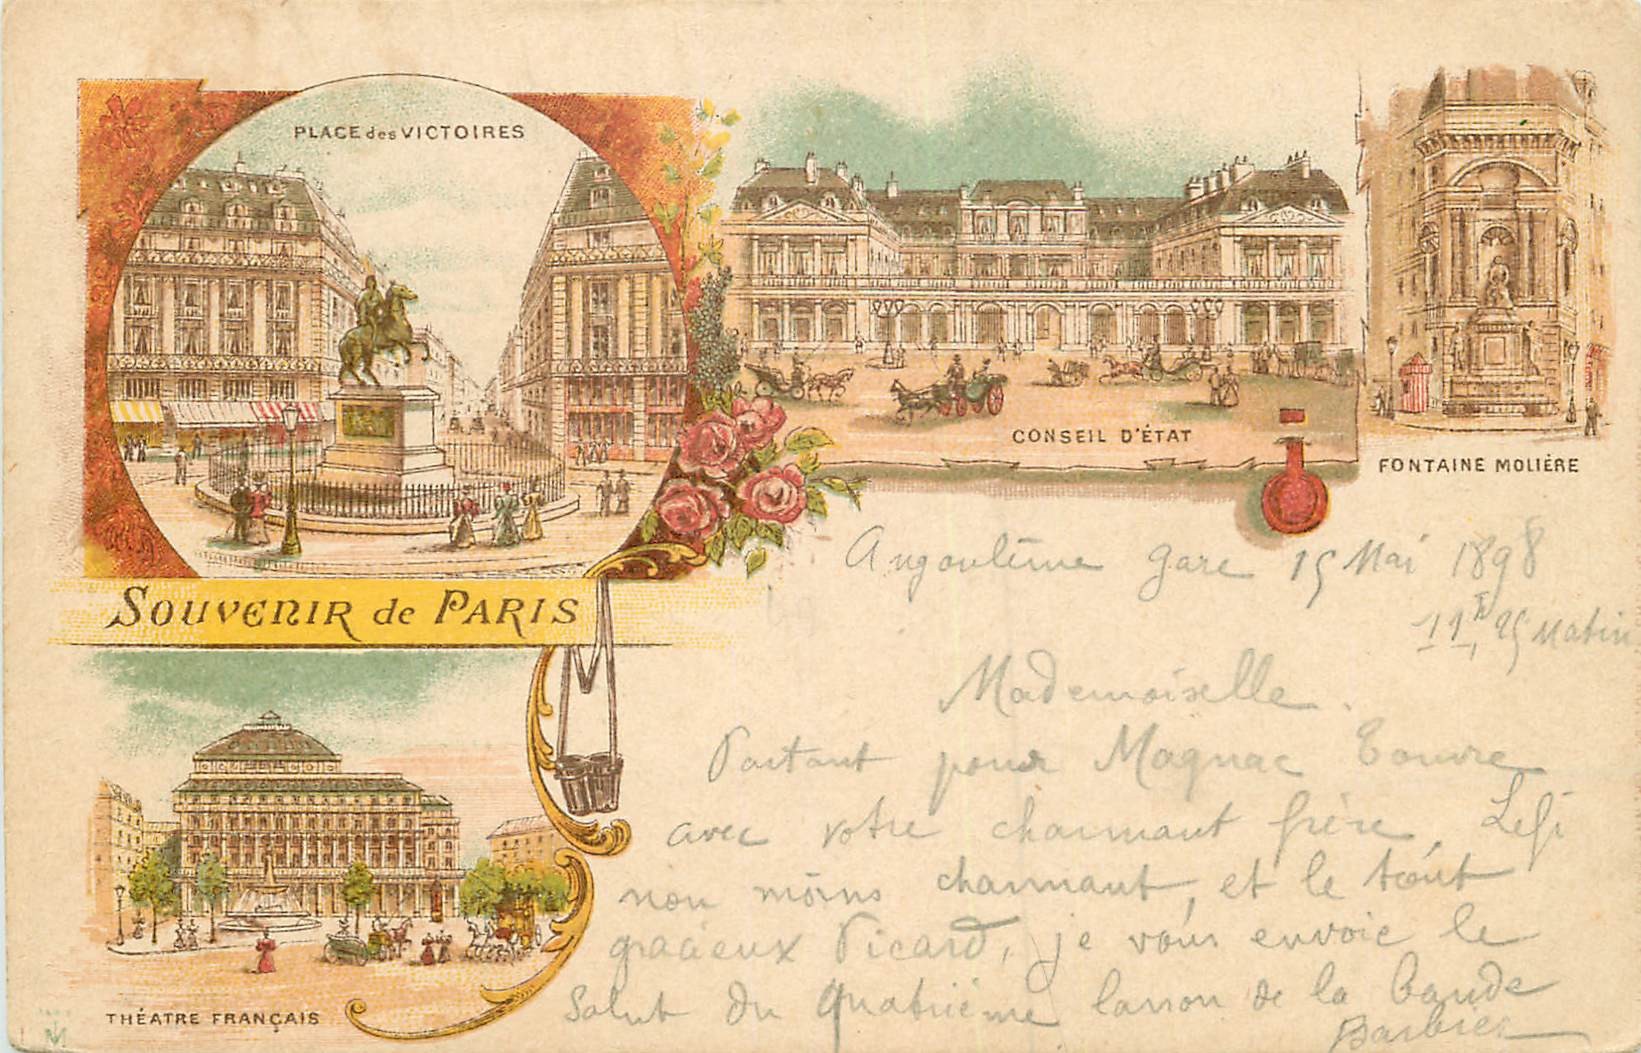 PLACE des VICTOIRES
CONSEIL D'ÉTAT
FONTAINE MOLIÈRE
SOUVENIR de PARIS
THÉATRE FRANÇAIS
Angoulême gare 15 Mai 1898
11h, 25 Matin
Mademoiselle.
Partant pour Magnac Touvre
avec votre charmant frère,
non moins charmant, et le tout
gracieux Picard, je vous envoie le
Salut du quatrième larron de la bande
Barbier